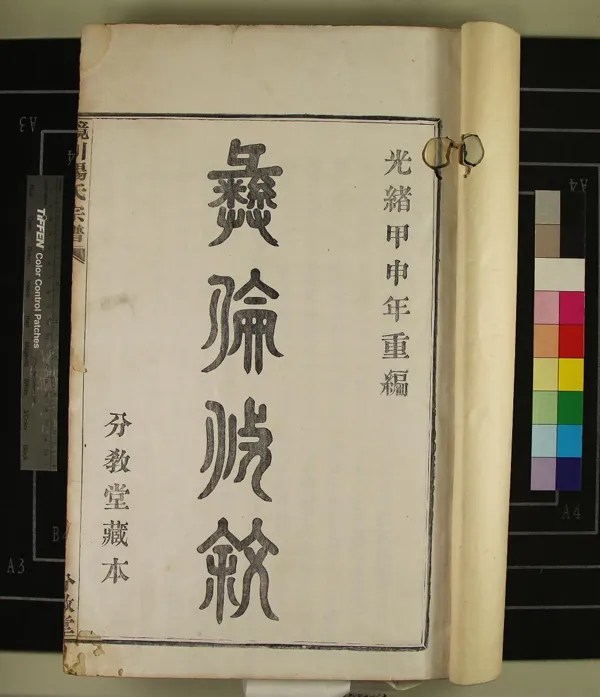 光緒甲申年重編
彝倫攸敘
分教堂藏本
鏡川楊氏宗譜
分教堂
TIFFEN Color Control Patches
A3
A4
A3
A4